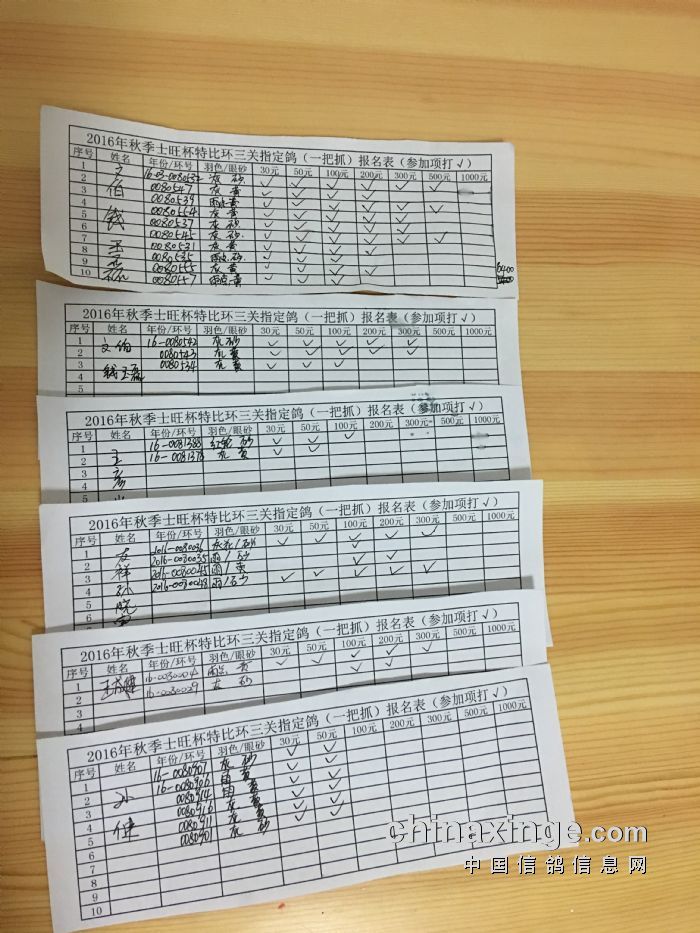 2016年秋季士旺杯特比环三关指定鸽（一把抓）报名表（参加项打√）
序号 姓名 年份/环号 羽色/眼砂 30元 50元 100元 200元 300元 500元 1000元
1 文 16-03-0080532 灰 砂 √ √ √ √ √ √
2 伯 0080547 灰 黄 √ √ √ √ √ √
3 0080539 雨点 黄 √ √ √ √ √
4 0080554 灰 砂 √ √ √ √ √ √
5 钱 0080537 灰 √ √ √ √ √
6 0080545 灰 砂 √ √ √ √ √ √
7 玉 0080531 灰 黄 √ √ √ √
8 0080535 雨点 √ √ √
9 磊 0080555 灰 黄 √ √
10 0080557 雨点 黄 √ √
2016年秋季士旺杯特比环三关指定鸽（一把抓）报名表（参加项打√）
序号 姓名 年份/环号 羽色/眼砂 30元 50元 100元 200元 300元 500元 1000元
1 文伯 16-0080542 灰 砂 √ √ √ √ √
2 0080543 灰 黄 √ √ √ √ √
3 钱玉磊 0080534 灰 黄 √ √ √
4
5
2016年秋季士旺杯特比环三关指定鸽（一把抓）报名表（参加项打√）
序号 姓名 年份/环号 羽色/眼砂 30元 50元 100元 200元 300元 500元 1000元
1 王 16-0081388 红轮 砂 √ √ √
2 16-0081378 灰 黄 √ √
3 彦
4
2016年秋季士旺杯特比环三关指定鸽（一把抓）报名表（参加项打√）
序号 姓名 年份/环号 羽色/眼砂 30元 50元 100元 200元 300元 500元 1000元
1 2016-0080036 灰花/砂 √ √ √ √ √
2 祥 2016-0080035 雨/砂 √
3 2016-0080045 雨/黄 √ √
4 孙 2016-0080048 雨/砂 √ √ √ √ √
5 晓
6
2016年秋季士旺杯特比环三关指定鸽（一把抓）报名表（参加项打√）
序号 姓名 年份/环号 羽色/眼砂 30元 50元 100元 200元 300元 500元 1000元
1 16-0080004 雨点 黄 √ √ √ √ √
2 16-0080029 灰 砂 √ √
3
4
2016年秋季士旺杯特比环三关指定鸽（一把抓）报名表（参加项打√）
序号 姓名 年份/环号 羽色/眼砂 30元 50元 100元 200元 300元 500元 1000元
1 16-0080907 灰 砂 √ √
2 孙 16-0080906 雨 黄 √ √
3 0080914 雨 黄 √ √
4 健 0080916 灰 黄 √ √
5 0080911 灰 黄 √ √
6 0080901 灰 砂 √ √
7
8
9
10
chinaxinge.com
中国信鸽信息网